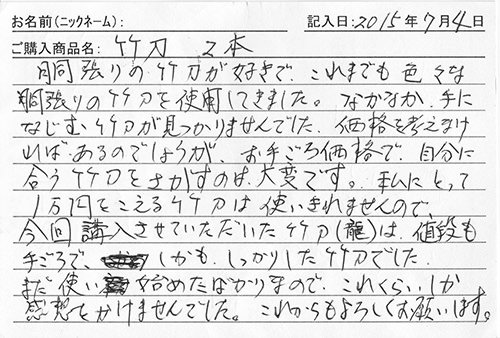 お名前(ニックネーム): 記入日:2015年7月4日
ご購入商品名: 竹刀 2本
胴張りの竹刀が好きで、これまでも色々な
胴張りの竹刀を使用してきました。なかなか、手に
なじむ竹刀が見つかりませんでした。価格を考えなけ
ればあるのでしょうが、お手ごろ価格で、自分に
合う竹刀をさがすのは大変です。私にとって
1万円をこえる竹刀は使いきれませんので、
今回購入させていただいた竹刀(龍)は、値段も
手ごろで、しかも、しっかりした竹刀でした。
まだ使い始めたばかりなので、これくらいしか
感想をかけませんでした。これからもよろしくお願います。